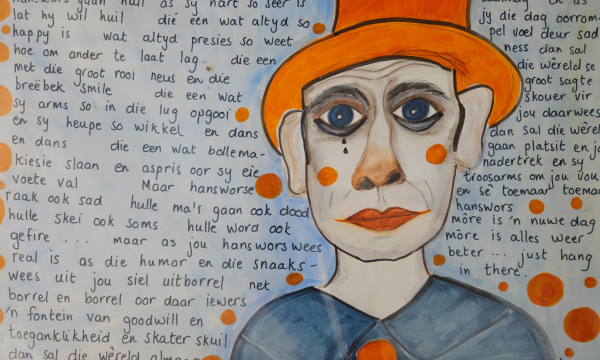 hanswors gaan huil as sy hart so seer is
lat hy wil huil die een wat altyd so
happy is wat altyd presies so weet
hoe om ander te laat lag die een
met die groot rooi neus en die
breëbek smile die een wat
sy arms so in die lug opgooi
en sy heupe so wikkel en dans
en dans die een wat bollema-
kiesie slaan en aspris oor sy eie
voete val Maar hansworse
raak ook sad hulle ma's gaan ook dood
hulle skei ook soms hulle word ook
gefire ... maar as jou hanswors wees
real is as die humor en die snaaks-
wees uit jou siel uitborrel net
borrel en borrel oor daar iewers
'n fontein van goodwill en
toeganklikheid en skater skuil
dan sal die wêreld
en as
jy die dag oorrom-
pel voel deur sad
ness dan sal
die wêreld se
groot sagte
skouer vir
jou daar wees
dan sal die wêreld
gaan platsit en jou
nadertrek en sy
troosarms om jou vou
en sê toemaar toemaar
hanswors
môre is 'n nuwe dag
môre is alles weer
beter ... just hang
in there.